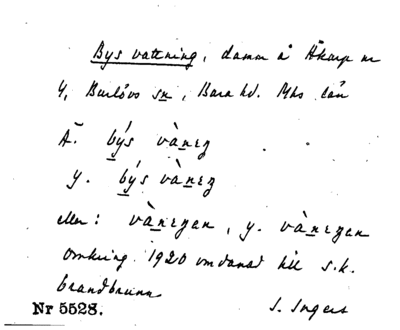 Bys vattning, damm å Åkarp nr
4, Burlövs sn, Bara hd. Mhs län
Ä. býs vànıng
y. býs vànıng
eller: vànıngan, y. vànıngan
omkring 1920 omdanad till s.k.
brandbrunn
Nr 5528. S. Ingers